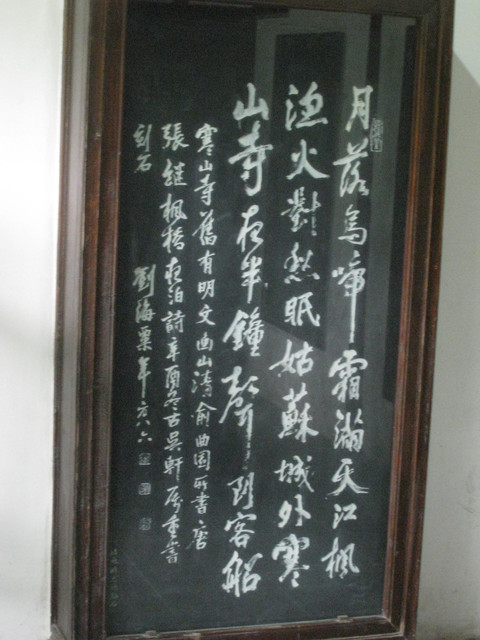 月落烏啼霜滿天江楓
漁火對愁眠姑蘇城外寒
山寺夜半鐘聲到客船
寒山寺舊有明文画山清俞曲园所書唐
張继楓橋夜泊詩辛酉冬古吳軒属重書
刻石
劉海粟年方八六